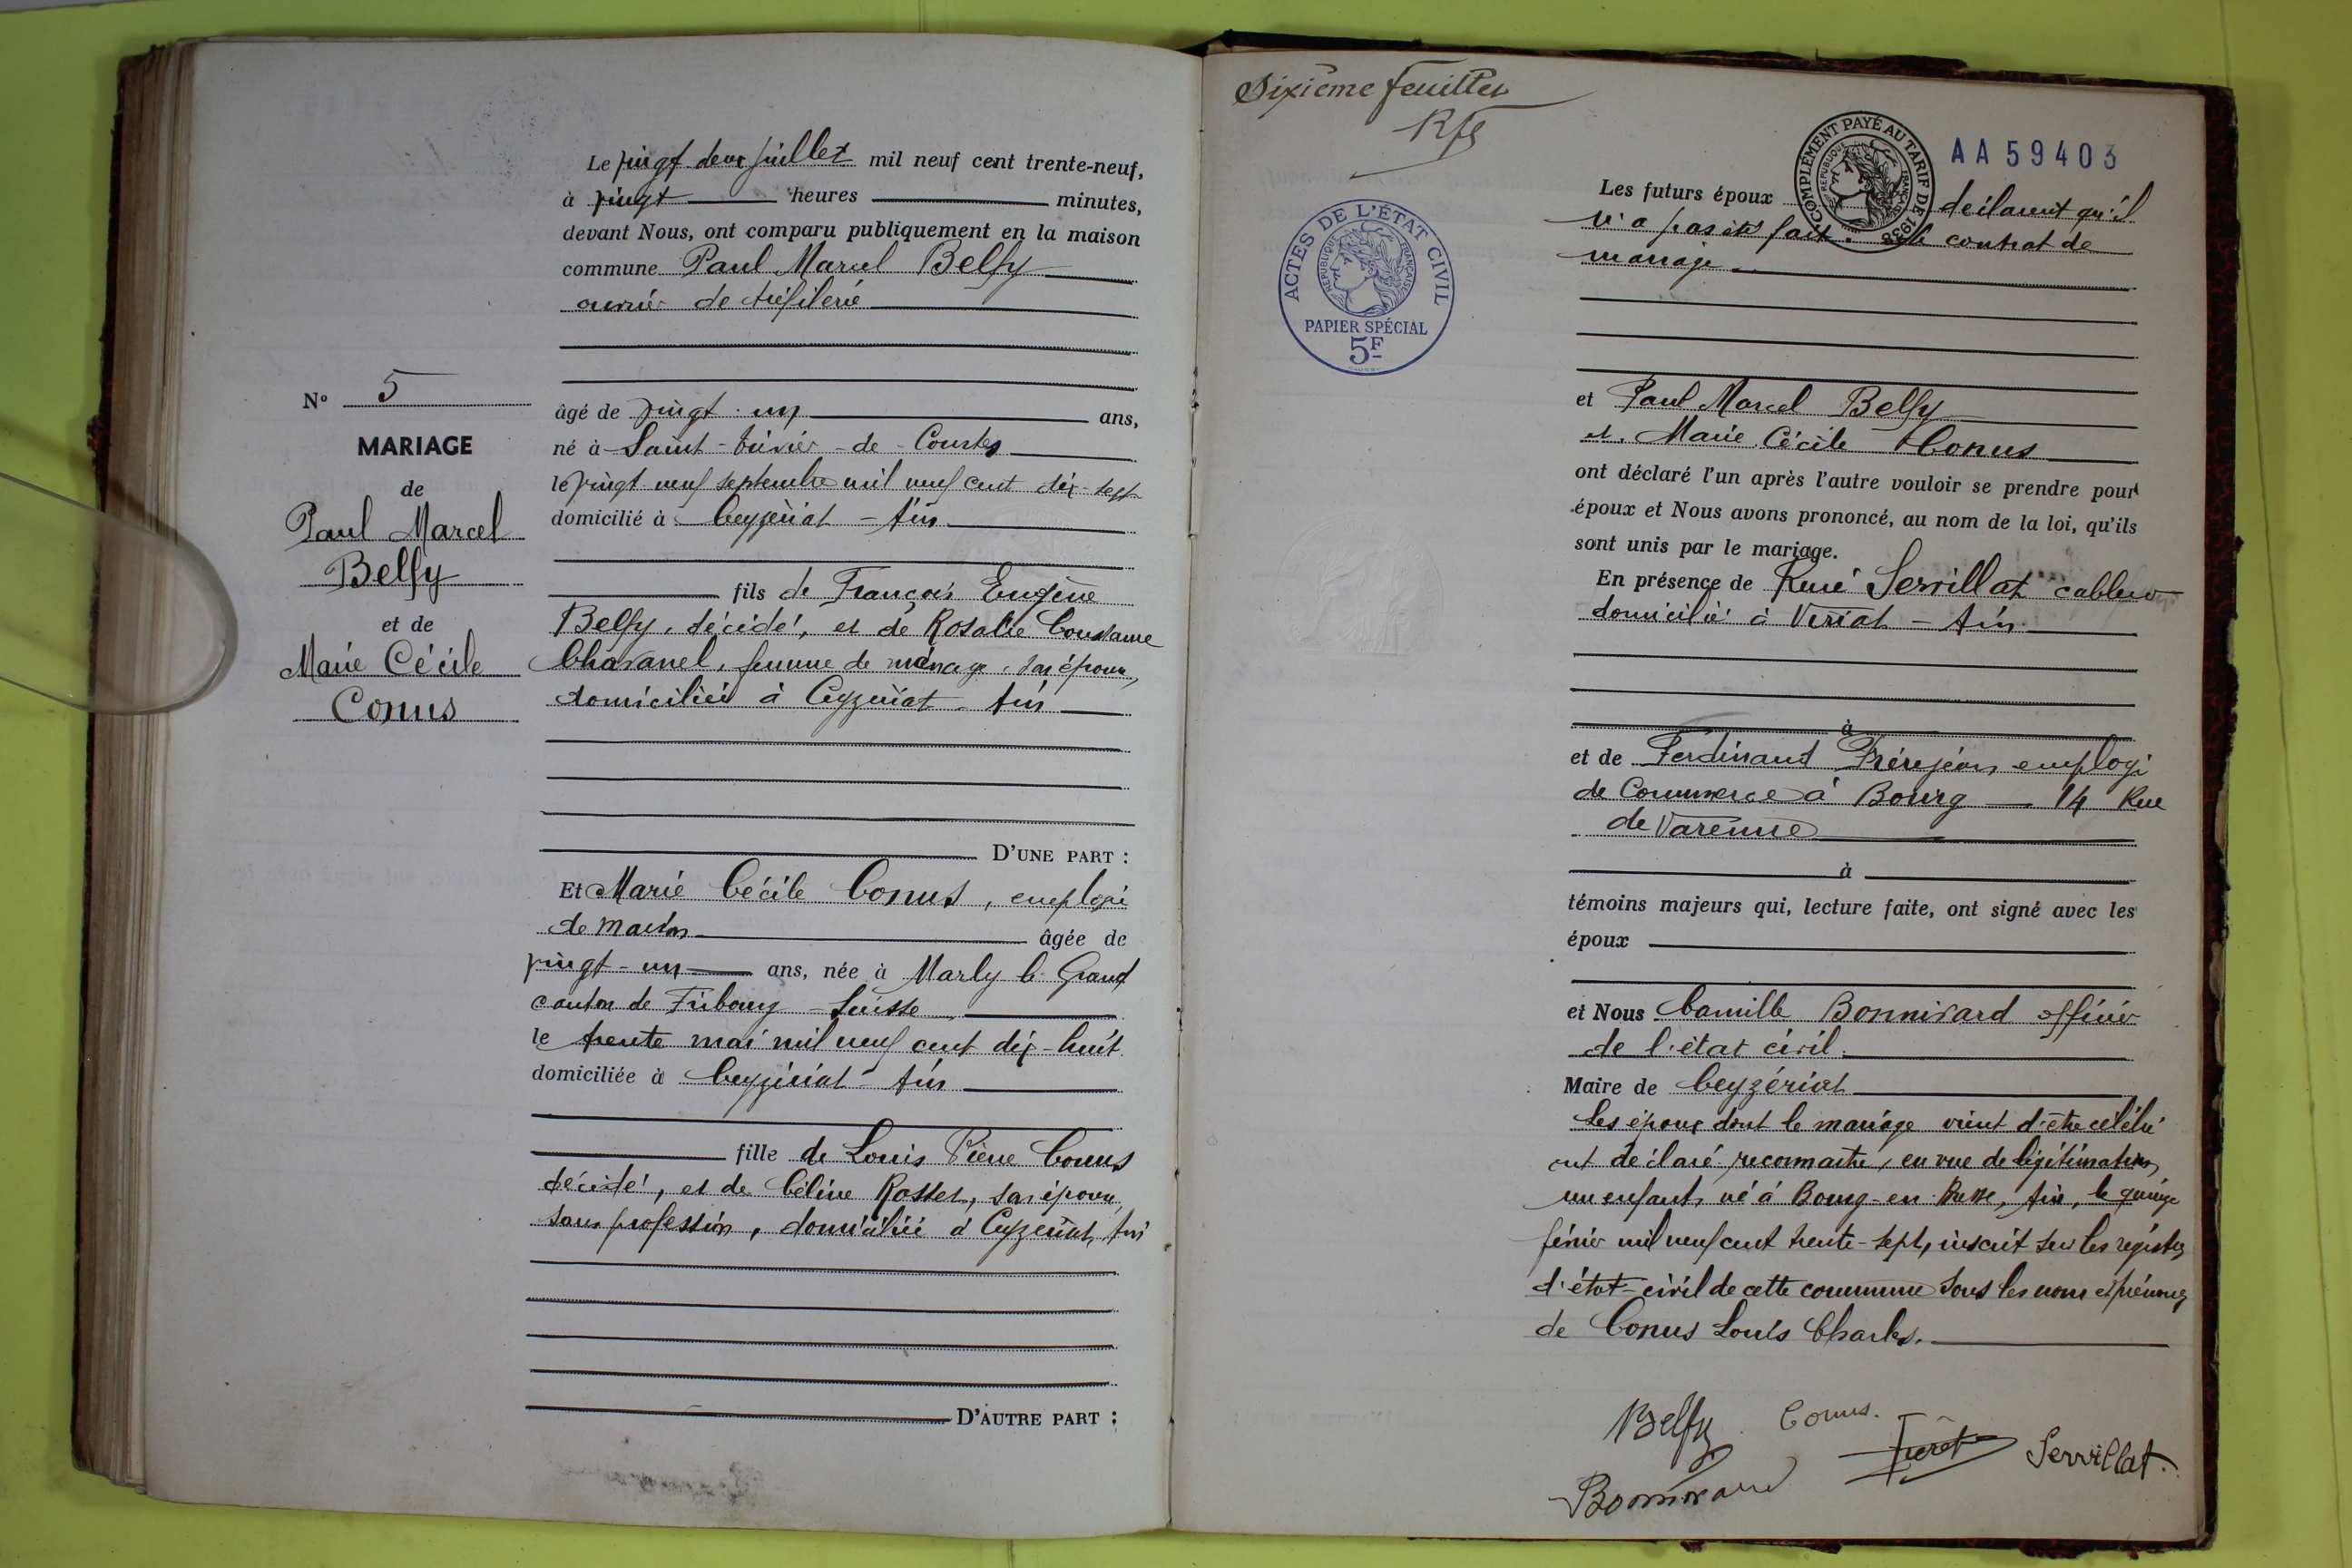 Le vingt-deux juillet mil neuf cent trente-neuf,
à vingt heures minutes,
devant Nous, ont comparu publiquement en la maison
commune Paul Marcel Belfy
ouvrier de tréfilerie
N° 5
MARIAGE
de
Paul Marcel
Belfy
et de
Marie Cécile
Conus
âgé de vingt-un ans,
né à Saint-Trivier-de-Courtes
le vingt-neuf septembre mil neuf cent dix-sept
domicilié à Ceyzériat - Ain
fils de François Eugène
Belfy, décédé, et de Rosalie Constance
Chavanel, femme de ménage, son épouse,
domiciliée à Ceyzériat - Ain
D'UNE PART :
Et Marie Cécile Conus, employée
de maison âgée de
vingt-un ans, née à Marly le Grand
canton de Fribourg - Suisse
le trente mai mil neuf cent dix-huit
domiciliée à Ceyzériat - Ain
fille de Louis Pierre Conus
décédé, et de Céline Rosset, son épouse,
sans profession, domiciliée à Ceyzériat, Ain
D'AUTRE PART :
Sixième feuillet
ACTES DE L'ÉTAT CIVIL
RÉPUBLIQUE FRANÇAISE
PAPIER SPÉCIAL
5F
COMPLÉMENT PAYÉ AU TARIF DE 1938
RÉPUBLIQUE FRANÇAISE
AA 59403
Les futurs époux déclarent qu'il
n'a pas été fait de contrat de
mariage
et Paul Marcel Belfy
et Marie Cécile Conus
ont déclaré l'un après l'autre vouloir se prendre pour
époux et Nous avons prononcé, au nom de la loi, qu'ils
sont unis par le mariage.
En présence de René Servillat cableur
domicilié à Viriat - Ain
à
et de Ferdinand Frèrejean employé
de Commerce à Bourg - 14 Rue
de Varenne
à
témoins majeurs qui, lecture faite, ont signé avec les
époux
et Nous Camille Bonnivard officier
de l'état civil
Maire de Ceyzériat
Les époux dont le mariage vient d'être célébré
ont déclaré reconnaître, en vue de légitimation,
un enfant né à Bourg-en-Bresse, Ain, le quinze
février mil neuf cent trente-sept, inscrit sur les registres
d'état-civil de cette commune sous les nom et prénoms
de Conus Louis Charles.
Belfy Conus. Servillat.
Bonnivard